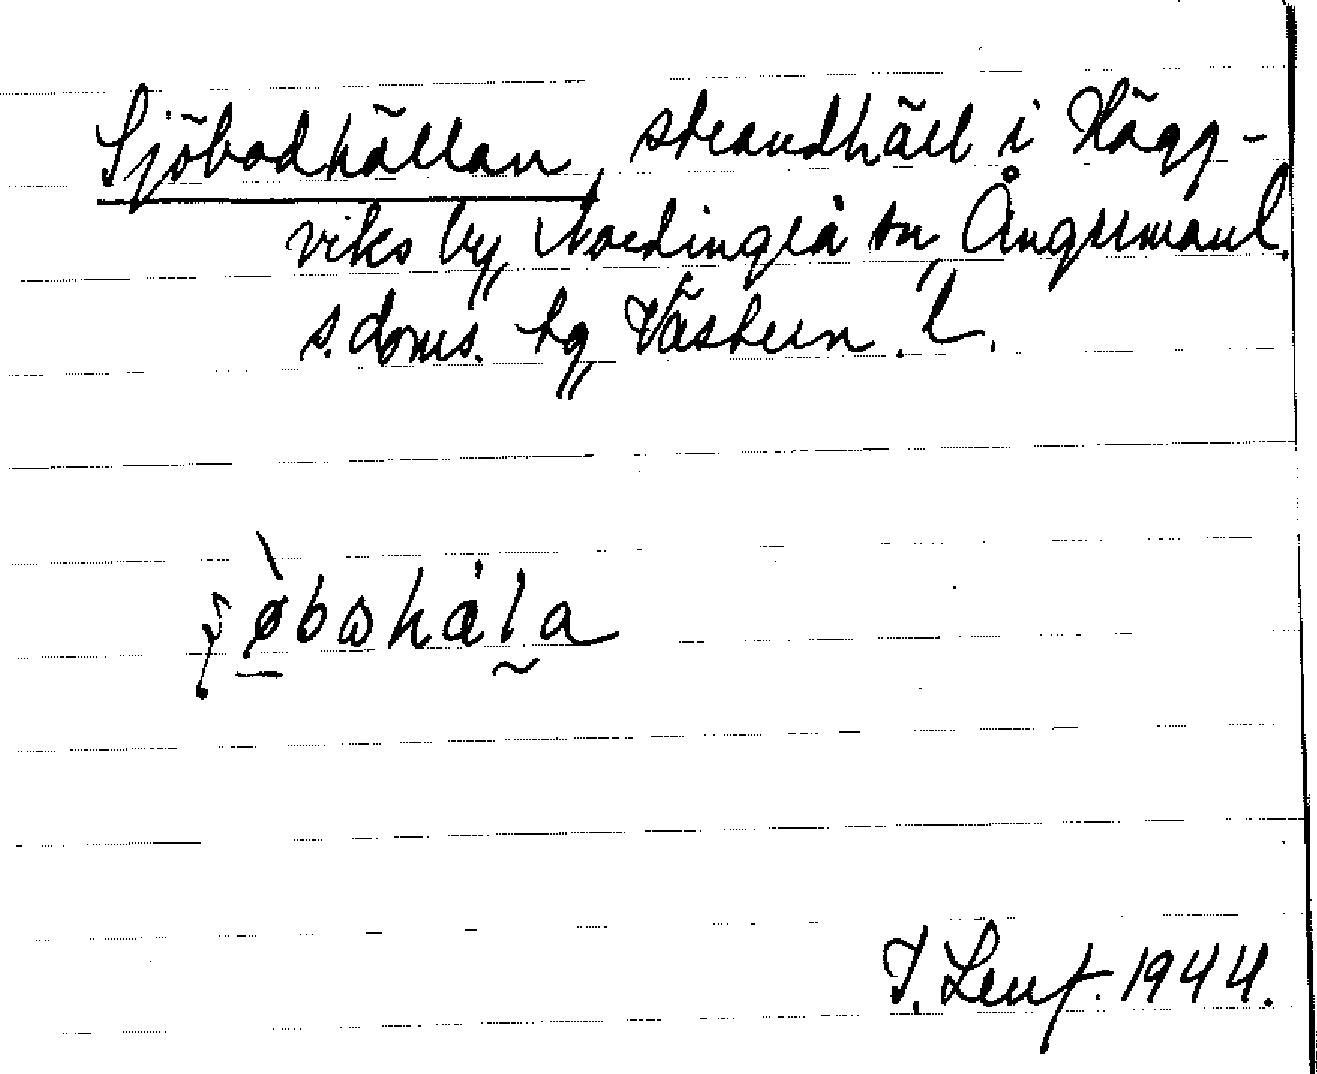 Sjöbodhällan, strandhäll i Hägg-
viks by, Nordingrå sn, Ångermanl.
s. doms. hq, Västern. L.
ʃøbωhäla
J. Lenf. 1944.